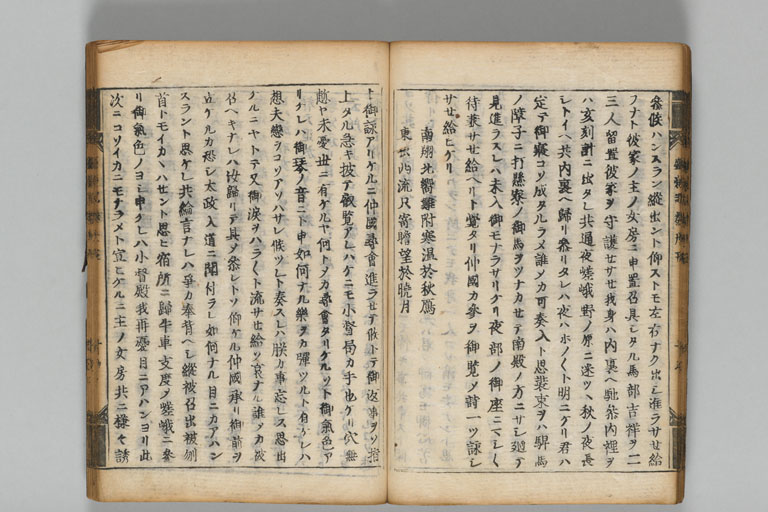 参候ハンスラン縦出ント仰ストモ左右ナク出シ進ラサセ給
フナト彼家ノ主ノ女房ニ申置召具シタル馬部吉祥ヲ二
三人留置彼家ヲ守護セサセ我身ハ内裏ヘ馳参内裡ヲ
ハ亥刻計ニ出タレ共通夜嵯峨野ノ原ニ迷ツヽ秋ノ夜長
シトイヘ共内裏ヘ帰リ参リタレハ夜ハホノ〱ト明ニケリ君ハ
定テ御寝コソ成タルラメ誰メカ可奏入ト思装束ヲハ
ノ障子ニ打懸寮ノ御馬ヲツナカセテ南殿ノ方ニサシ廻テ
見進ラスレハ未入御モナラサリケリ夜部ノ御座ニマシ〱
待装サセ給ヘリト覚タリ仲國カ参ヲ御覧ノ詩一ツ詠シ
サセ給ヒケリ
南翔北嚮難附寒温於秋鴈
東出西流只寄瞻望於暁月
ト御詠アリケルニ仲國尋會進ラセテ候トテ御返事ヲソ指
上タル急キ披テ叡覧アレハケニモ小督局カ手也ケリ穴無
趣ヤ未愛世ニ有ケルヤ何トメカ尋會タリケルソト御氣色ア
リケレハ御琴ノ音ニト申如何ナル樂ヲカ彈ツルト有ケレハ
想夫戀ヲコソアソハサレ候ツレト奏スレハ朕カ事忘レス思出
ケルニヤトテ又御涙ヲハラ〱ト流サセ給ソ哀ナル誰ヲカ
召ヘキナレハ汝歸リテ具ソ参レトソ仰ケル仲國承リ御前ヲ
立ケルカ恐シ太政入道ニ聞付ラレ如何ナル目ニカアハン
スラント思ケレ共綸言ナレハ争カ奉背ヘシ縦被召出被刎
首トモイカハハセント思ヒ宿所ニ歸牛車支度ノ嵯峨ニ参
リ御氣色ノヨシ申ケレハ小督殿我再憂目ニアハンヨリ此
次ニコソイカニモナラメト宣ヒケルニ主ノ女房共ニ様々誘